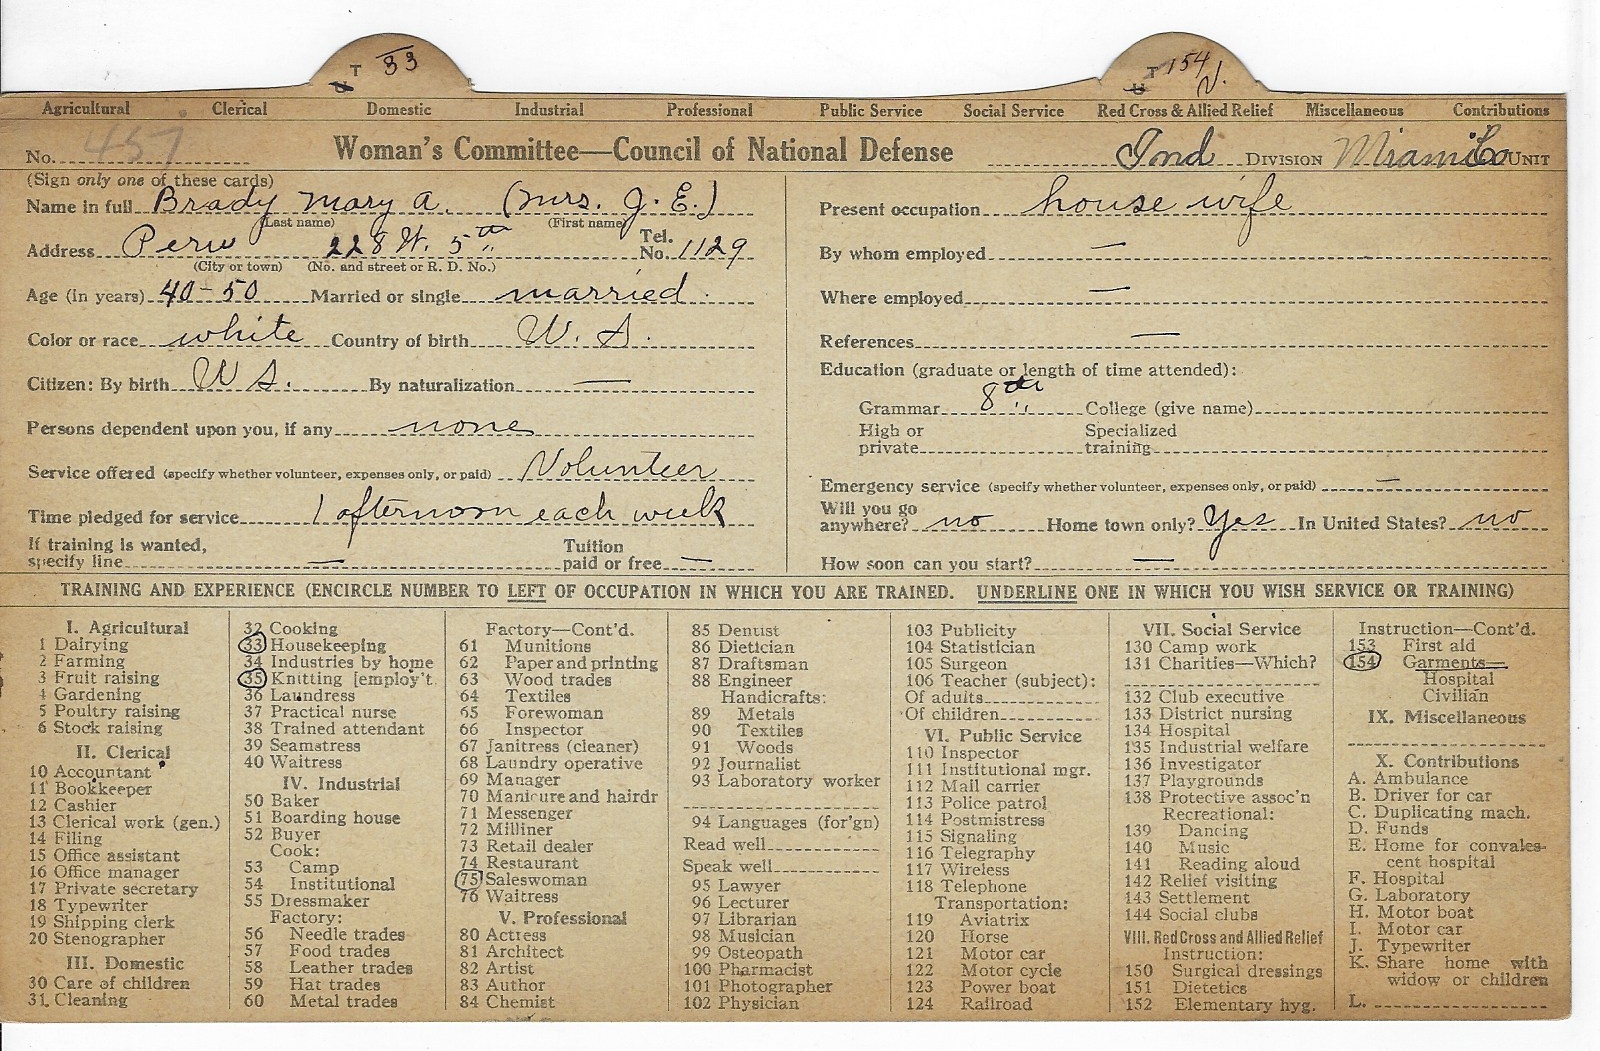 T 33
T 154 V.
Agricultural Clerical Domestic Industrial Professional Public Service Social Service Red Cross & Allied Relief Miscellaneous Contributions
No. 457 Woman's Committee—Council of National Defense Ind DIVISION Miami Co UNIT
(Sign only one of these cards)
Name in full Brady Mary A. (Mrs. J. E.)
(Last name) (First name)
Address Peru 228 W. 5th Tel. No. 1129
(City or town) (No. and street or R. D. No.)
Age (in years) 40-50 Married or single married.
Color or race white Country of birth U. S.
Citizen: By birth U S. By naturalization —
Persons dependent upon you, if any none
Service offered (specify whether volunteer, expenses only, or paid) Volunteer
Time pledged for service 1 afternoon each week
If training is wanted, specify line — Tuition paid or free —
Present occupation house wife
By whom employed —
Where employed —
References —
Education (graduate or length of time attended):
Grammar 8th College (give name)
High or private Specialized training
Emergency service (specify whether volunteer, expenses only, or paid) —
Will you go anywhere? no Home town only? Yes In United States? no
How soon can you start? —
TRAINING AND EXPERIENCE (ENCIRCLE NUMBER TO LEFT OF OCCUPATION IN WHICH YOU ARE TRAINED. UNDERLINE ONE IN WHICH YOU WISH SERVICE OR TRAINING)
I. Agricultural
1 Dairying
2 Farming
3 Fruit raising
4 Gardening
5 Poultry raising
6 Stock raising
II. Clerical
10 Accountant
11 Bookkeeper
12 Cashier
13 Clerical work (gen.)
14 Filing
15 Office assistant
16 Office manager
17 Private secretary
18 Typewriter
19 Shipping clerk
20 Stenographer
III. Domestic
30 Care of children
31 Cleaning
32 Cooking
33 Housekeeping
34 Industries by home
35 Knitting [employ't.
36 Laundress
37 Practical nurse
38 Trained attendant
39 Seamstress
40 Waitress
IV. Industrial
50 Baker
51 Boarding house
52 Buyer
Cook:
53 Camp
54 Institutional
55 Dressmaker
Factory:
56 Needle trades
57 Food trades
58 Leather trades
59 Hat trades
60 Metal trades
Factory—Cont'd.
61 Munitions
62 Paper and printing
63 Wood trades
64 Textiles
65 Forewoman
66 Inspector
67 Janitress (cleaner)
68 Laundry operative
69 Manager
70 Manicure and hairdr
71 Messenger
72 Milliner
73 Retail dealer
74 Restaurant
75 Saleswoman
76 Waitress
V. Professional
80 Actress
81 Architect
82 Artist
83 Author
84 Chemist
85 Dentist
86 Dietician
87 Draftsman
88 Engineer
Handicrafts:
89 Metals
90 Textiles
91 Woods
92 Journalist
93 Laboratory worker
94 Languages (for'gn)
Read well
Speak well
95 Lawyer
96 Lecturer
97 Librarian
98 Musician
99 Osteopath
100 Pharmacist
101 Photographer
102 Physician
103 Publicity
104 Statistician
105 Surgeon
106 Teacher (subject):
Of adults
Of children
VI. Public Service
110 Inspector
111 Institutional mgr.
112 Mail carrier
113 Police patrol
114 Postmistress
115 Signaling
116 Telegraphy
117 Wireless
118 Telephone
Transportation:
119 Aviatrix
120 Horse
121 Motor car
122 Motor cycle
123 Power boat
124 Railroad
VII. Social Service
130 Camp work
131 Charities—Which?
132 Club executive
133 District nursing
134 Hospital
135 Industrial welfare
136 Investigator
137 Playgrounds
138 Protective assoc'n
Recreational:
139 Dancing
140 Music
141 Reading aloud
142 Relief visiting
143 Settlement
144 Social clubs
VIII. Red Cross and Allied Relief
Instruction:
150 Surgical dressings
151 Dietetics
152 Elementary hyg.
Instruction—Cont'd.
153 First aid
154 Garments—
Hospital
Civilian
IX. Miscellaneous
X. Contributions
A. Ambulance
B. Driver for car
C. Duplicating mach.
D. Funds
E. Home for convales-
cent hospital
F. Hospital
G. Laboratory
H. Motor boat
I. Motor car
J. Typewriter
K. Share home with
widow or children
L.